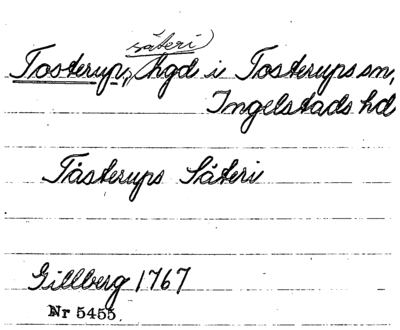 säteri)
Tosterup, hgd i Tosterups sn,
Ingelstads hd
Tåsterups Säteri
Gillberg 1767
Nr 5455